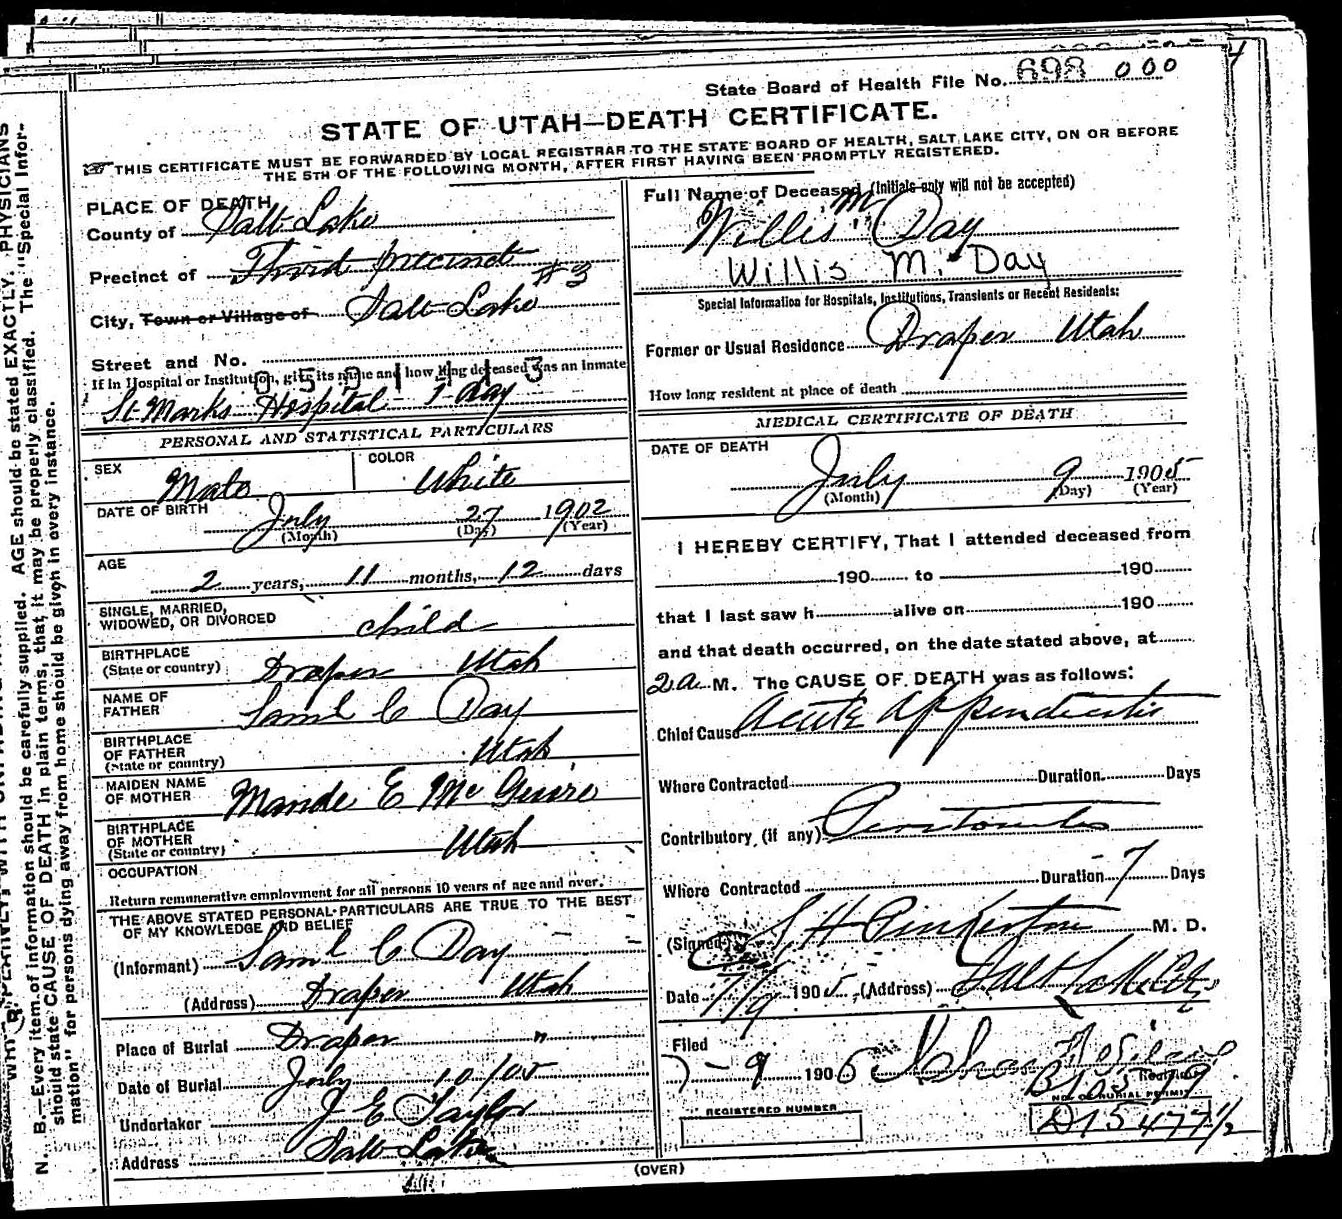 State Board of Health File No. 698 000
STATE OF UTAH—DEATH CERTIFICATE.
THIS CERTIFICATE MUST BE FORWARDED BY LOCAL REGISTRAR TO THE STATE BOARD OF HEALTH, SALT LAKE CITY, ON OR BEFORE
THE 5TH OF THE FOLLOWING MONTH, AFTER FIRST HAVING BEEN PROMPTLY REGISTERED.
PLACE OF DEATH
County of Salt Lake
Precinct of Third precinct #3
City, Town or Village of Salt Lake
Street and No.
0501443
If in Hospital or Institution, give its name and how long deceased was an inmate
St Marks Hospital - 1 day
PERSONAL AND STATISTICAL PARTICULARS
SEX Male
COLOR White
DATE OF BIRTH
July 27 1902
(Month) (Day) (Year)
AGE
2 years, 11 months, 12 days
SINGLE, MARRIED,
WIDOWED, OR DIVORCED child
BIRTHPLACE
(State or country) Draper Utah
NAME OF
FATHER Saml C Day
BIRTHPLACE
OF FATHER
(State or country) Utah
MAIDEN NAME
OF MOTHER Maude E McGuire
BIRTHPLACE
OF MOTHER
(State or country) Utah
OCCUPATION
Return remunerative employment for all persons 10 years of age and over.
THE ABOVE STATED PERSONAL PARTICULARS ARE TRUE TO THE BEST
OF MY KNOWLEDGE AND BELIEF
(Informant) Saml C Day
(Address) Draper Utah
Place of Burial Draper "
Date of Burial July 10/05
Undertaker J E Taylor
Address Salt Lake
Full Name of Deceased (Initials only will not be accepted)
Willis M Day
Willis M. Day
Special Information for Hospitals, Institutions, Transients or Recent Residents:
Former or Usual Residence Draper Utah
How long resident at place of death
MEDICAL CERTIFICATE OF DEATH
DATE OF DEATH
July 9 1905
(Month) (Day) (Year)
I HEREBY CERTIFY, That I attended deceased from
190 to 190
that I last saw h alive on 190
and that death occurred, on the date stated above, at
2 a M. The CAUSE OF DEATH was as follows:
Chief Cause Acute Appendicitis
Where Contracted Duration Days
Contributory (if any) Peritonitis
Where Contracted Duration 7 Days
(Signed) S H Pinkerton M. D.
Date 7/9 1905, (Address) Salt Lake City
Filed
7-9 1906
Registrar
NO. OF BURIAL PERMIT
REGISTERED NUMBER
D15477½
(OVER)
N. B.—Every item of information should be carefully supplied. AGE should be stated EXACTLY. PHYSICIANS
should state CAUSE OF DEATH in plain terms, that it may be properly classified. The "Special Infor-
mation" for persons dying away from home should be given in every instance.